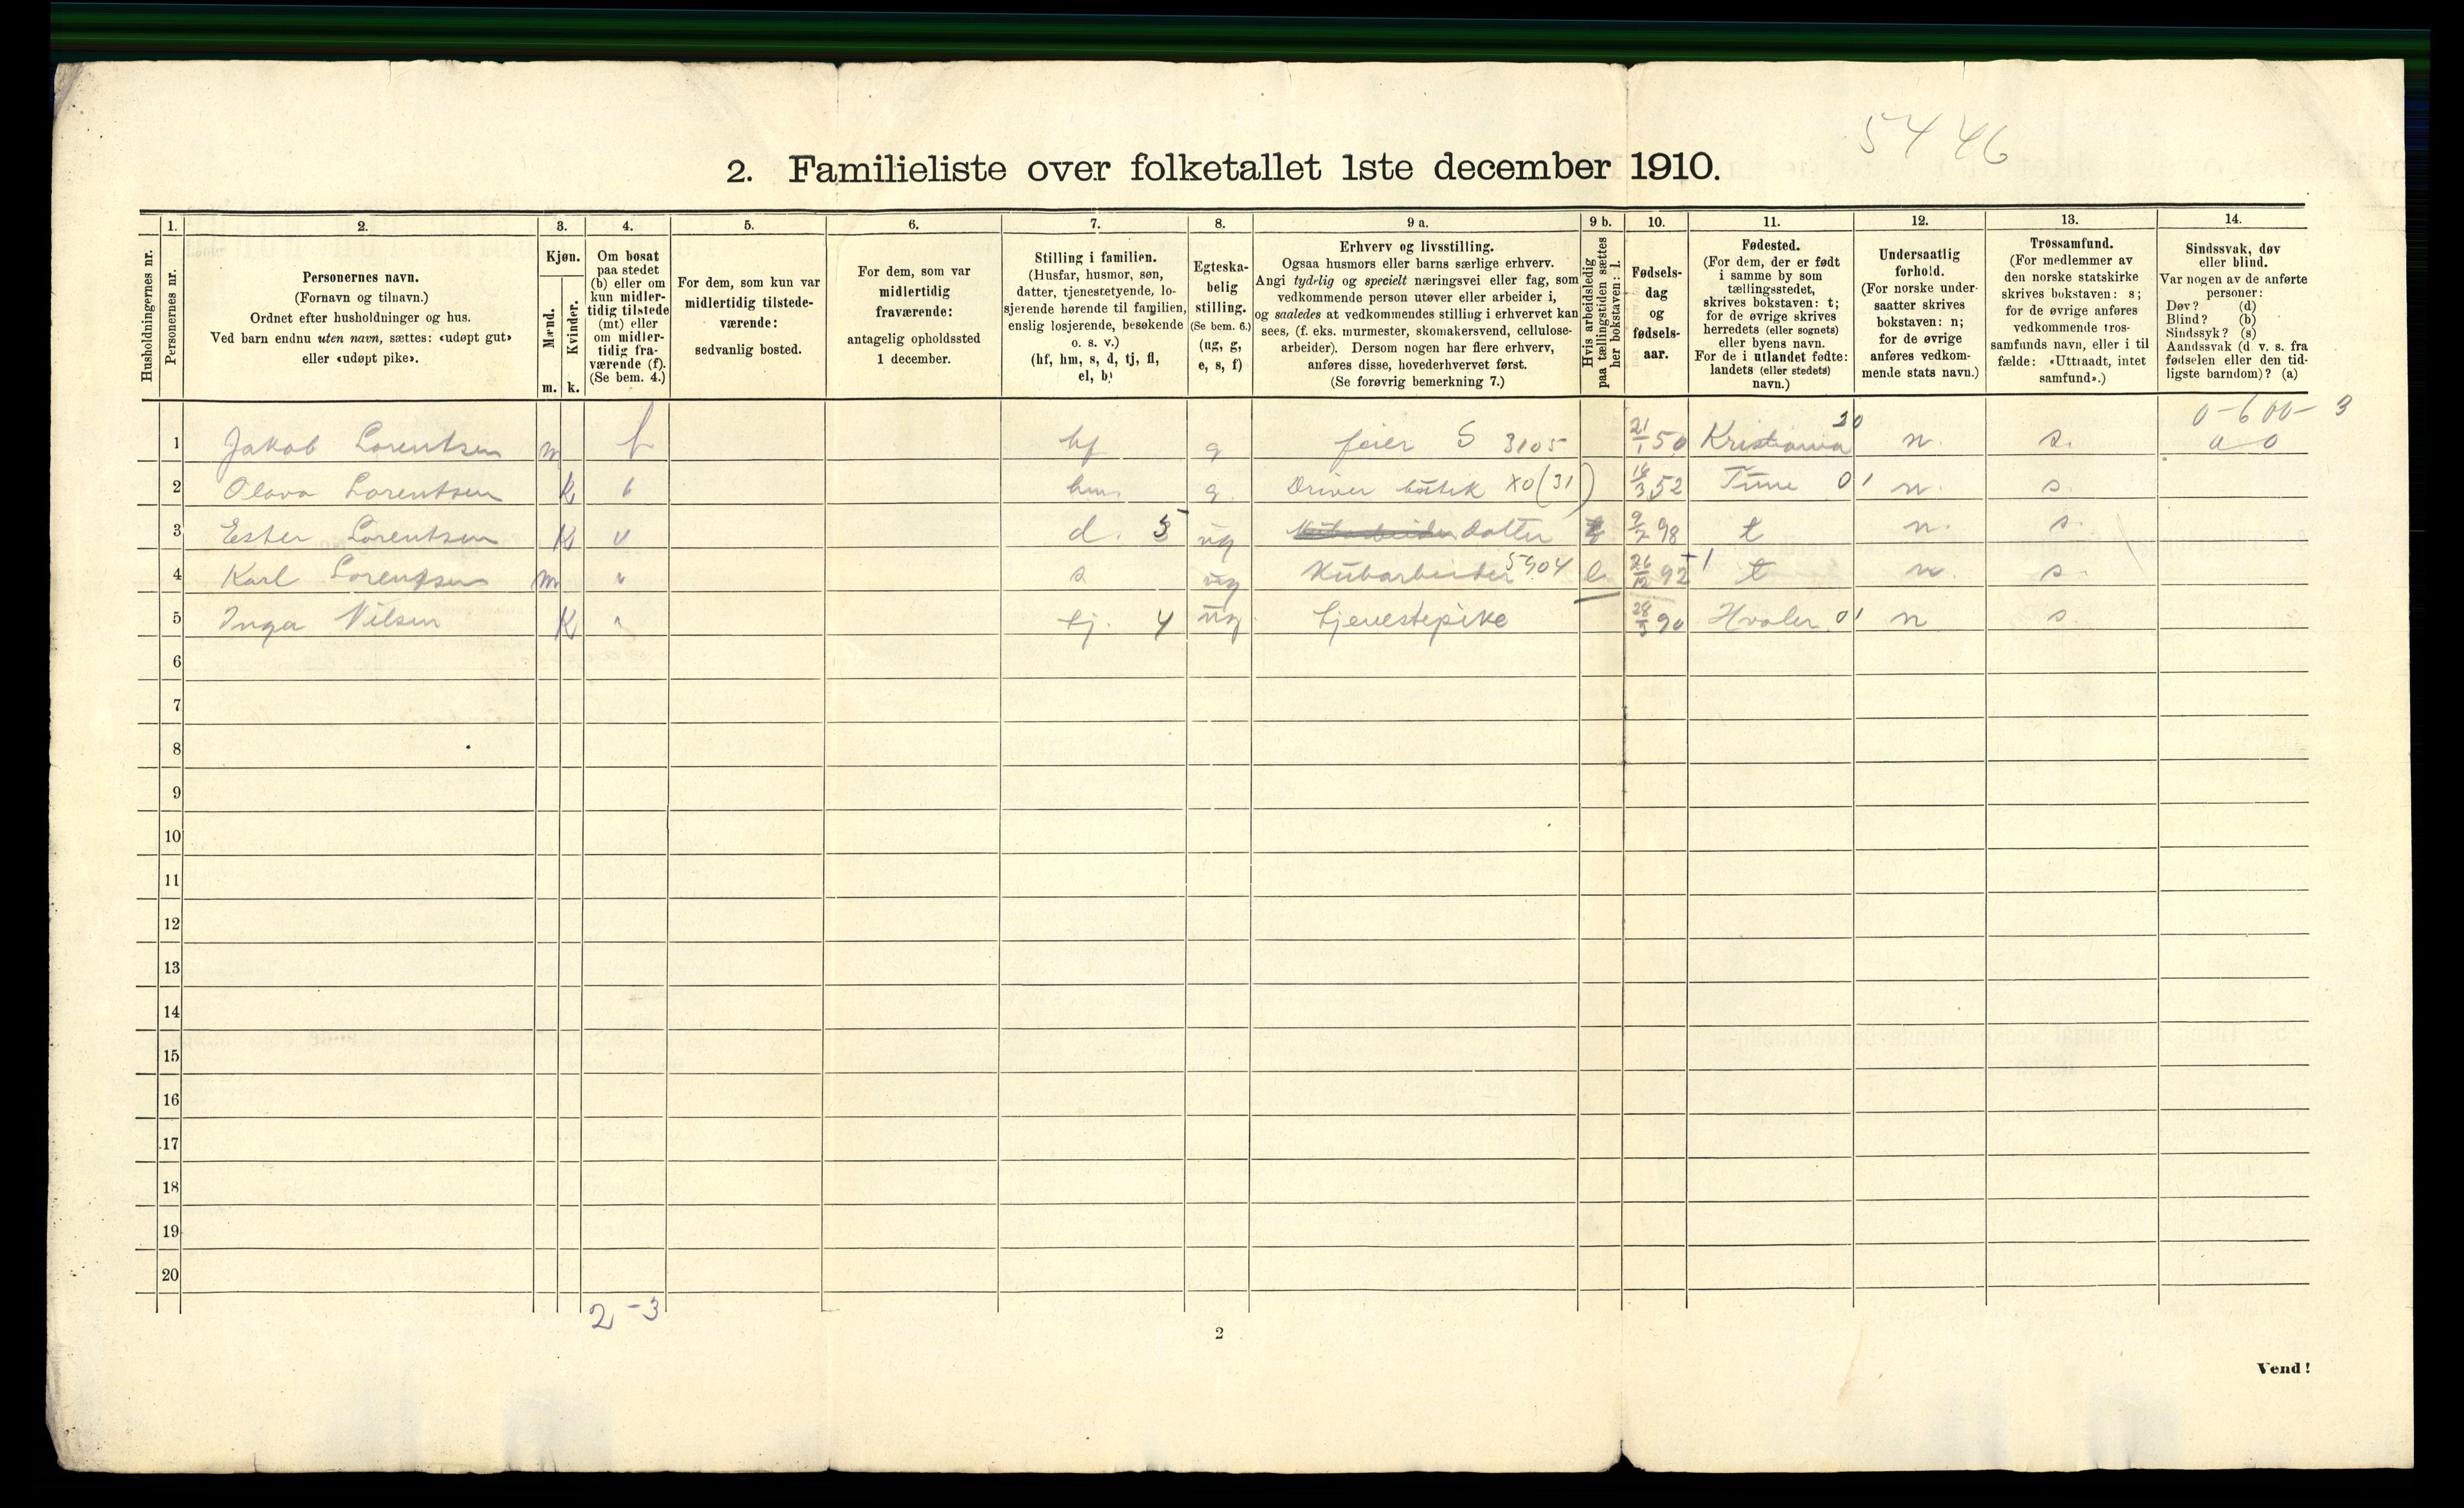 5446
2. Familieliste over folketallet 1ste december 1910.
Husholdningernes nr.
1.
Personernes nr.
2.
Personernes navn.
(Fornavn og tilnavn.)
Ordnet efter husholdninger og hus.
Ved barn endnu uten navn, sættes: «udøpt gut»
eller «udøpt pike».
3.
Kjøn.
Mænd.
Kvinder.
m. k.
4.
Om bosat
paa stedet
(b) eller om
kun midler-
tidig tilstede
(mt) eller
om midler-
tidig fra-
værende (f).
(Se bem. 4.)
5.
For dem, som kun var
midlertidig tilstede-
værende:
sedvanlig bosted.
6.
For dem, som var
midlertidig
fraværende:
antagelig opholdssted
1 december.
7.
Stilling i familien.
(Husfar, husmor, søn,
datter, tjenestetyende, lo-
sjerende hørende til familien,
enslig losjerende, besøkende
o. s. v.)
(hf, hm, s, d, tj, fl,
el, b)
8.
Egteska-
belig
stilling.
(Se bem. 6.)
(ug, g,
e, s, f)
9 a.
Erhverv og livsstilling.
Ogsaa husmors eller barns særlige erhverv.
Angi tydelig og specielt næringsvei eller fag, som
vedkommende person utøver eller arbeider i,
og saaledes at vedkommendes stilling i erhvervet kan
sees, (f. eks. murmester, skomakersvend, cellulose-
arbeider). Dersom nogen har flere erhverv,
anføres disse, hovederhvervet først.
(Se forøvrig bemerkning 7.)
9 b.
Hvis arbeidsledig
paa tællingstiden sættes
her bokstaven: l.
10.
Fødsels-
dag
og
fødsels-
aar.
11.
Fødested.
(For dem, der er født
i samme by som
tællingsstedet,
skrives bokstaven: t;
for de øvrige skrives
herredets (eller sognets)
eller byens navn.
For de i utlandet fødte:
landets (eller stedets)
navn.)
12.
Undersaatlig
forhold.
(For norske under-
saatter skrives
bokstaven: n;
for de øvrige
anføres vedkom-
mende stats navn.)
13.
Trossamfund.
(For medlemmer av
den norske statskirke
skrives bokstaven: s;
for de øvrige anføres
vedkommende tros-
samfunds navn, eller i til-
fælde: «Uttraadt, intet
samfund».)
14.
Sindssvak, døv
eller blind.
Var nogen av de anførte
personer:
Døv? (d)
Blind? (b)
Sindssyk? (s)
Aandssvak (d. v. s. fra
fødselen eller den tid-
ligste barndom)? (a)
0-600-3
1 Jakob Lorentsen m f hf g feier S 3105 21/1 50 Kristiania 20 n. s. 0
2 Olava Lorentsen k b hm. g. Driver butik X0(31) 14/3 52 Tune 01 n. s.
3 Ester Lorentsen k " d. 5 ug datter 9/7 98 t n. s.
4 Karl Lorentsen m " s ug Kubarbeider 5904 l 26/12 92 t n. s.
5 Inga Nilsen k " tj. 4 ug. tjenestepike 28/5 90 Hvaler 01 n s.
6
7
8
9
10
11
12
13
14
15
16
17
18
19
20
2-3
2
Vend!